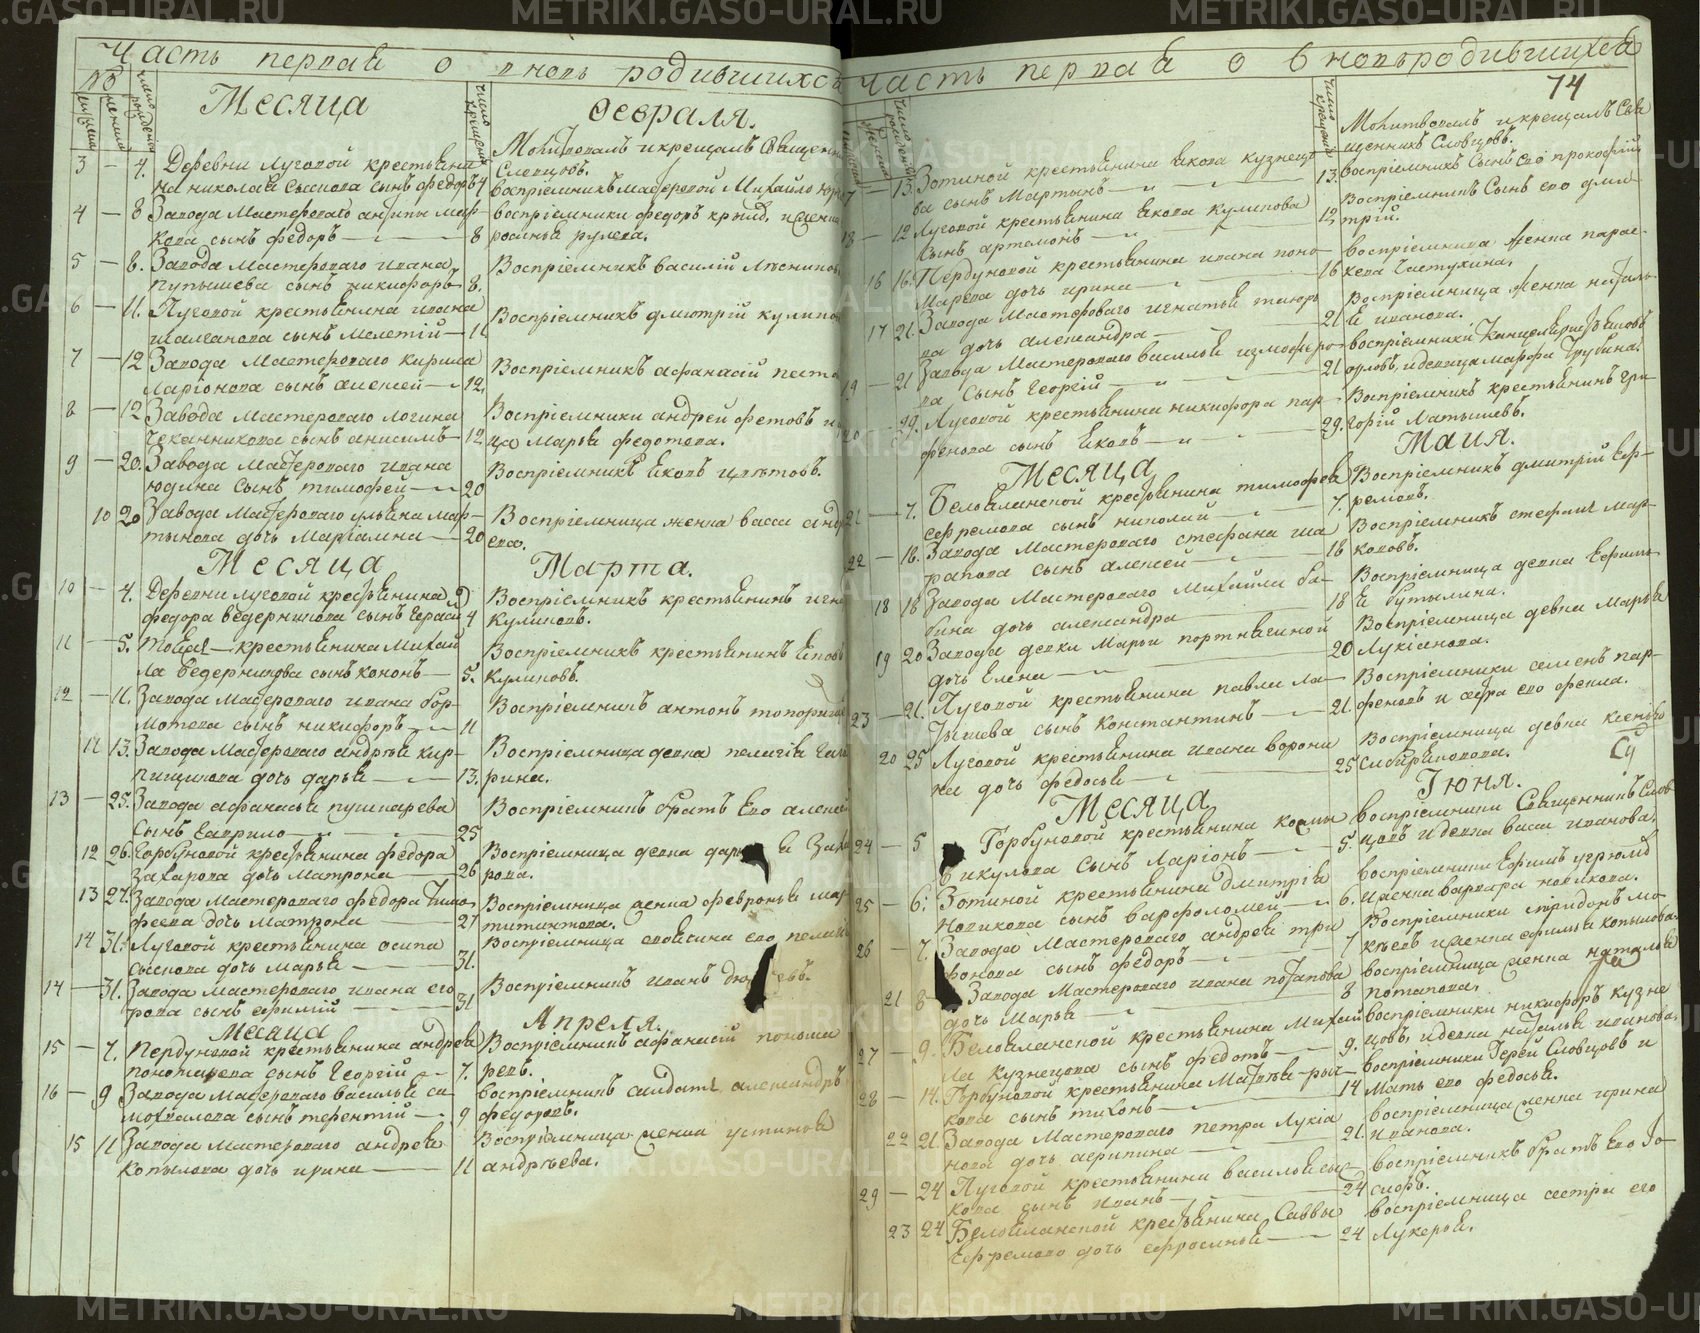 Часть первая о вновь родившихся
Месяца Февраля.
Молитвовалъ и крещалъ Священни
3 — 4. Деревни Луговой крестьяни-
на Николая Сысоева сынъ Федоръ 4
Словцовъ.
воспрiемникъ мастеровой Михайло
4 — 8 Завода Мастероваго Антипы Мар-
кова сынъ Федоръ — 8
воспрiемники Федоръ
5 — 8. Завода Мастероваго Ивана
Пупышева сынъ Никифоръ 8.
Воспрiемникъ Василiй
6 — 11. Луговой крестьянина Ивана
сынъ Мелетiй — 11
Воспрiемникъ Дмитрiй Кулико
7 — 12 Завода Мастероваго Кирила
Ларiонова сынъ Алексей — 12.
Воспрiемникъ Афанасiй
8 — 12 Завода Мастероваго Логина
Чеканникова сынъ Анисимъ — 12
Воспрiемники Андрей Фетовъ
ца Марья Федотова.
9 — 20. Завода Мастероваго Ивана
Юдина сынъ Тимофей — 20
Воспрiемникъ Яковъ
10 20 Завода Мастероваго Ульяна Мар-
тынова дочь Марiамна — 20
Воспрiемница женка Васса Андр
ева.
Месяца Марта.
10 — 4. Деревни Луговой крестьянина
Федора Ведерникова сынъ Герасим 4
Воспрiемникъ крестьянинъ Игна
Куликовъ.
11 — 5. Тоей — крестьянина Михай
ла Ведерникова сынъ Кононъ — 5.
Воспрiемникъ крестьянинъ Яковъ
Куликовъ.
12 — 11. Завода Мастероваго Ивана Бор-
мотова сынъ Никифоръ — 11
Воспрiемникъ Антонъ
11 13. Завода Мастероваго Андрея Кир-
пищикова дочь Дарья — 13.
Воспрiемница девка Пелагiя
рина.
13 — 25. Завода Афанасья Пушкарева
сынъ Гаврило — 25
Воспрiемникъ братъ Его Алексей
12 26. Горбуновой крестьянина Федора
Захарова дочь Матрона — 26
Воспрiемница девка Дарья Заха
рова.
13 27. Завода Мастероваго Федора Тимо-
феева дочь Матрона — 27
Воспрiемница женка Февронья Мар
14 31. Луговой крестьянина Осипа
Сысоева дочь Марья — 31.
Воспрiемница его Пелаг
14 — 31. Завода Мастероваго Ивана Его
рова сынъ Ефимiй — 31
Воспрiемникъ Иванъ
Месяца Апреля.
15 — 7. Пердуновой крестьянина Андрея
Пономарева сынъ Георгiй — 7.
Воспрiемникъ Афанасiй Понома
ревъ.
16 — 9 Завода Мастероваго Василья Са-
мохвалова сынъ Терентiй — 9
воспрiемникъ Солдатъ Александръ
Федоровъ.
15 11 Завода Мастероваго Андрея
Копылова дочь Ирина — 11
Воспрiемница женка Устинья
Андреева.
Часть первая о вновьродившихся
74
Молитвовалъ и крещалъ Свя
щенникъ Словцовъ.
17 — 13. Зотиной крестьянина Якова Кузнецо
ва сынъ Мартынъ — 13.
воспрiемникъ Сынъ Его Прокофiй
18 — 12 Луговой крестьянина Якова Куликова
сынъ Артемонъ — 12
Воспрiемникъ Сынъ его Дми-
трiй.
16 16. Пердуновой крестьянина Ивана Поно-
марева дочь Ирина — 16
воспрiемница женка Парас-
кева Частухина.
17 21. Завода Мастероваго Игнатья
ва дочь Александра — 21
Воспрiемница женка Наталь
я Иванова.
19 — 21 Завода Мастероваго Василья
ва Сынъ Георгiй — 21
воспрiемники
Орловъ, и девица Марфа Трубина.
20 — 29. Луговой крестьянина Никифора Пар-
фенова сынъ Яковъ — 29.
Воспрiемникъ крестьянинъ Гри-
горiй Латышевъ.
Месяца Маiя.
21 — 7. Белоеланской крестьянина Тимофея
Ефремова сынъ Николай — 7.
Воспрiемникъ Дмитрiй Еф-
ремовъ.
22 — 18. Завода Мастероваго Стефана Ша
рапова сынъ Алексей — 18
Воспрiемникъ Стефанъ Мар-
ковъ.
18 18 Завода Мастероваго Михайла Ба-
бина дочь Александра — 18
Воспрiемница девка Ефимь
я Бутылина.
19 20 Завода девки Марьи Портнягиной
дочь Елена — 20
Воспрiемница девка Марья
Лукiанова.
23 — 21. Луговой крестьянина Павла Ла-
тышева сынъ Константинъ — 21.
Воспрiемники Семенъ Пар-
феновъ и сестра его Фекла.
20 25 Луговой крестьянина Ивана Ворони
на дочь Федосья — 25
Воспрiемница девка Ксенья
Сибирякова.
Месяца Iюня.
24 — 5 Горбуновой крестьянина Козмы
Викулова Сынъ Ларiонъ — 5.
воспрiемники Священникъ Слов
цовъ и девка Васса Иванова.
25 — 6. Зотиной крестьянина Дмитрiя
Новикова сынъ Варфоломей — 6.
воспрiемники Ефимъ Угрюмо
и женка Варвара Новикова.
26 — 7. Завода Мастероваго Андрея Три
фонова сынъ Федоръ — 7
Воспрiемники Спиридонъ Мо-
и женка Ефимья Копылова
21 8 Завода Мастероваго Ивана Потапова
дочь Марья — 8
воспрiемница женка Наталья
Потапова.
27 — 9. Белоеланской крестьянина Михай
ла Кузнецова сынъ Федотъ — 9.
воспрiемники Никифоръ Кузне
цовъ, и девка Наталья Иванова.
28 — 14. Горбуновой крестьянина Матвея Рыч-
кова сынъ Тихонъ — 14
воспрiемники Iерей Словцовъ и
Мать его Федосья.
22 21. Завода Мастероваго Петра Лукiа
нова дочь Агрипина — 21.
воспрiемница женка Ирина
Иванова.
29 — 24 Луговой крестьянина Василья Сы-
кова сынъ Иванъ — 24
воспрiемникъ братъ Его
23 24 Белоеланской крестьянина Саввы
Ефремова дочь Ефросинья — 24
воспрiемница сестра его
Лукерья.